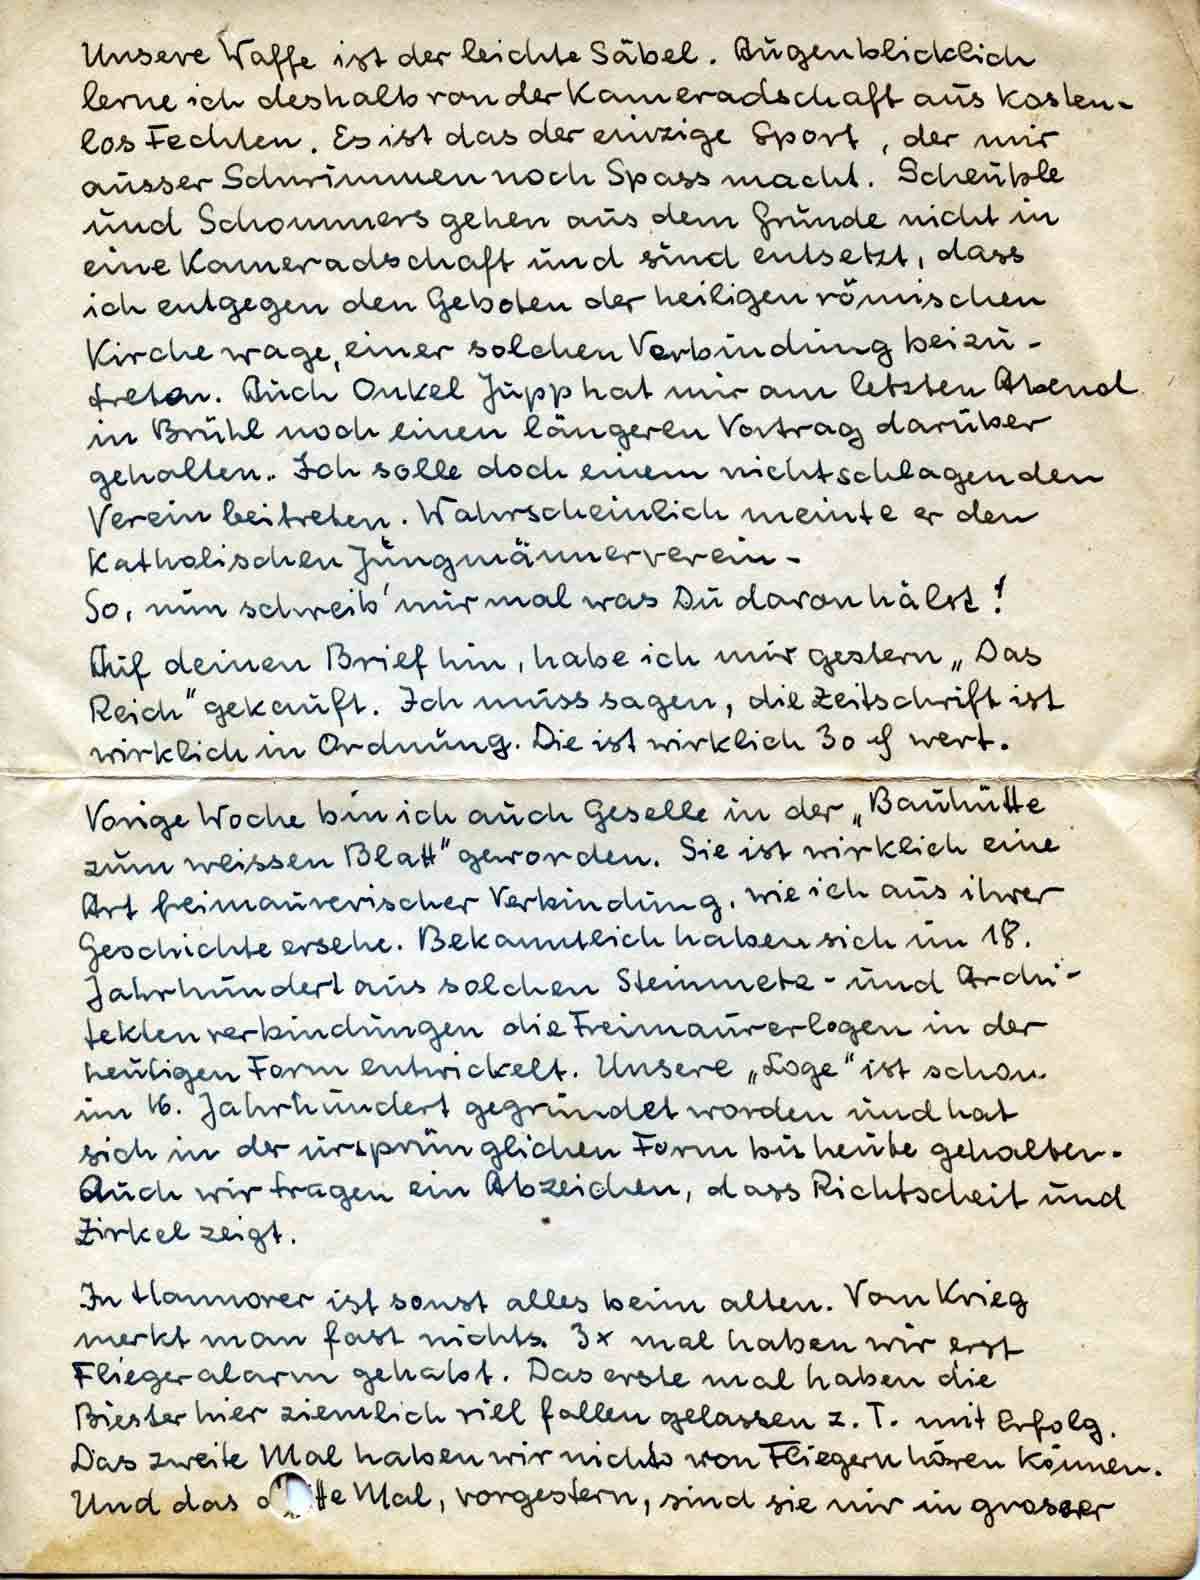 Unsere Waffe ist der leichte Säbel. Augenblicklich
lerne ich deshalb von der Kameradschaft aus kosten-
los Fechten. Es ist das der einzige Sport, der mir
ausser Schwimmen noch Spass macht. Scheuble
und Schommers gehen aus dem Grunde nicht in
eine Kameradschaft und sind entsetzt, dass
ich entgegen den Geboten der heiligen römischen
Kirche wage, einer solchen Verbindung beizu-
treten. Auch Onkel Jupp hat mir am letzten Abend
in Brühl noch einen längeren Vortrag darüber
gehalten. Ich solle doch einem nichtschlagenden
Verein beitreten. Wahrscheinlich meinte er den
Katholischen Jungmännerverein.
So, nun schreib' mir mal was Du davon hälst!
Auf deinen Brief hin, habe ich mir gestern „Das
Reich" gekauft. Ich muss sagen, die Zeitschrift ist
wirklich in Ordnung. Die ist wirklich 30 ₰ wert.
Vorige Woche bin ich auch Geselle in der „Bauhütte
zum weissen Blatt" geworden. Sie ist wirklich eine
Art freimaurerischer Verbindung, wie ich aus ihrer
Geschichte ersehe. Bekanntlich haben sich im 18.
Jahrhundert aus solchen Steinmetz- und Archi-
tektenverbindungen die Freimaurerlogen in der
heutigen Form entwickelt. Unsere „Loge" ist schon
im 16. Jahrhundert gegründet worden und hat
sich in der ursprünglichen Form bis heute gehalten.
Auch wir tragen ein Abzeichen, dass Richtscheit und
Zirkel zeigt.
In Hannover ist sonst alles beim alten. Vom Krieg
merkt man fast nichts. 3x mal haben wir erst
Fliegeralarm gehabt. Das erste mal haben die
Biester hier ziemlich viel fallen gelassen z. T. mit Erfolg.
Das zweite Mal haben wir nichts von Fliegern hören können.
Und das dritte Mal, vorgestern, sind sie nur in grosser